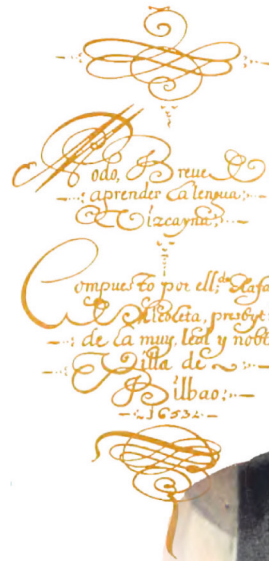 Modo, Breve
aprender la lengua,
Vizcayna,
Compuesto por ell:do Rafa
Micoleta, presvyt
de la muy, leal y nobl
Villa de
Bilbao;
1653